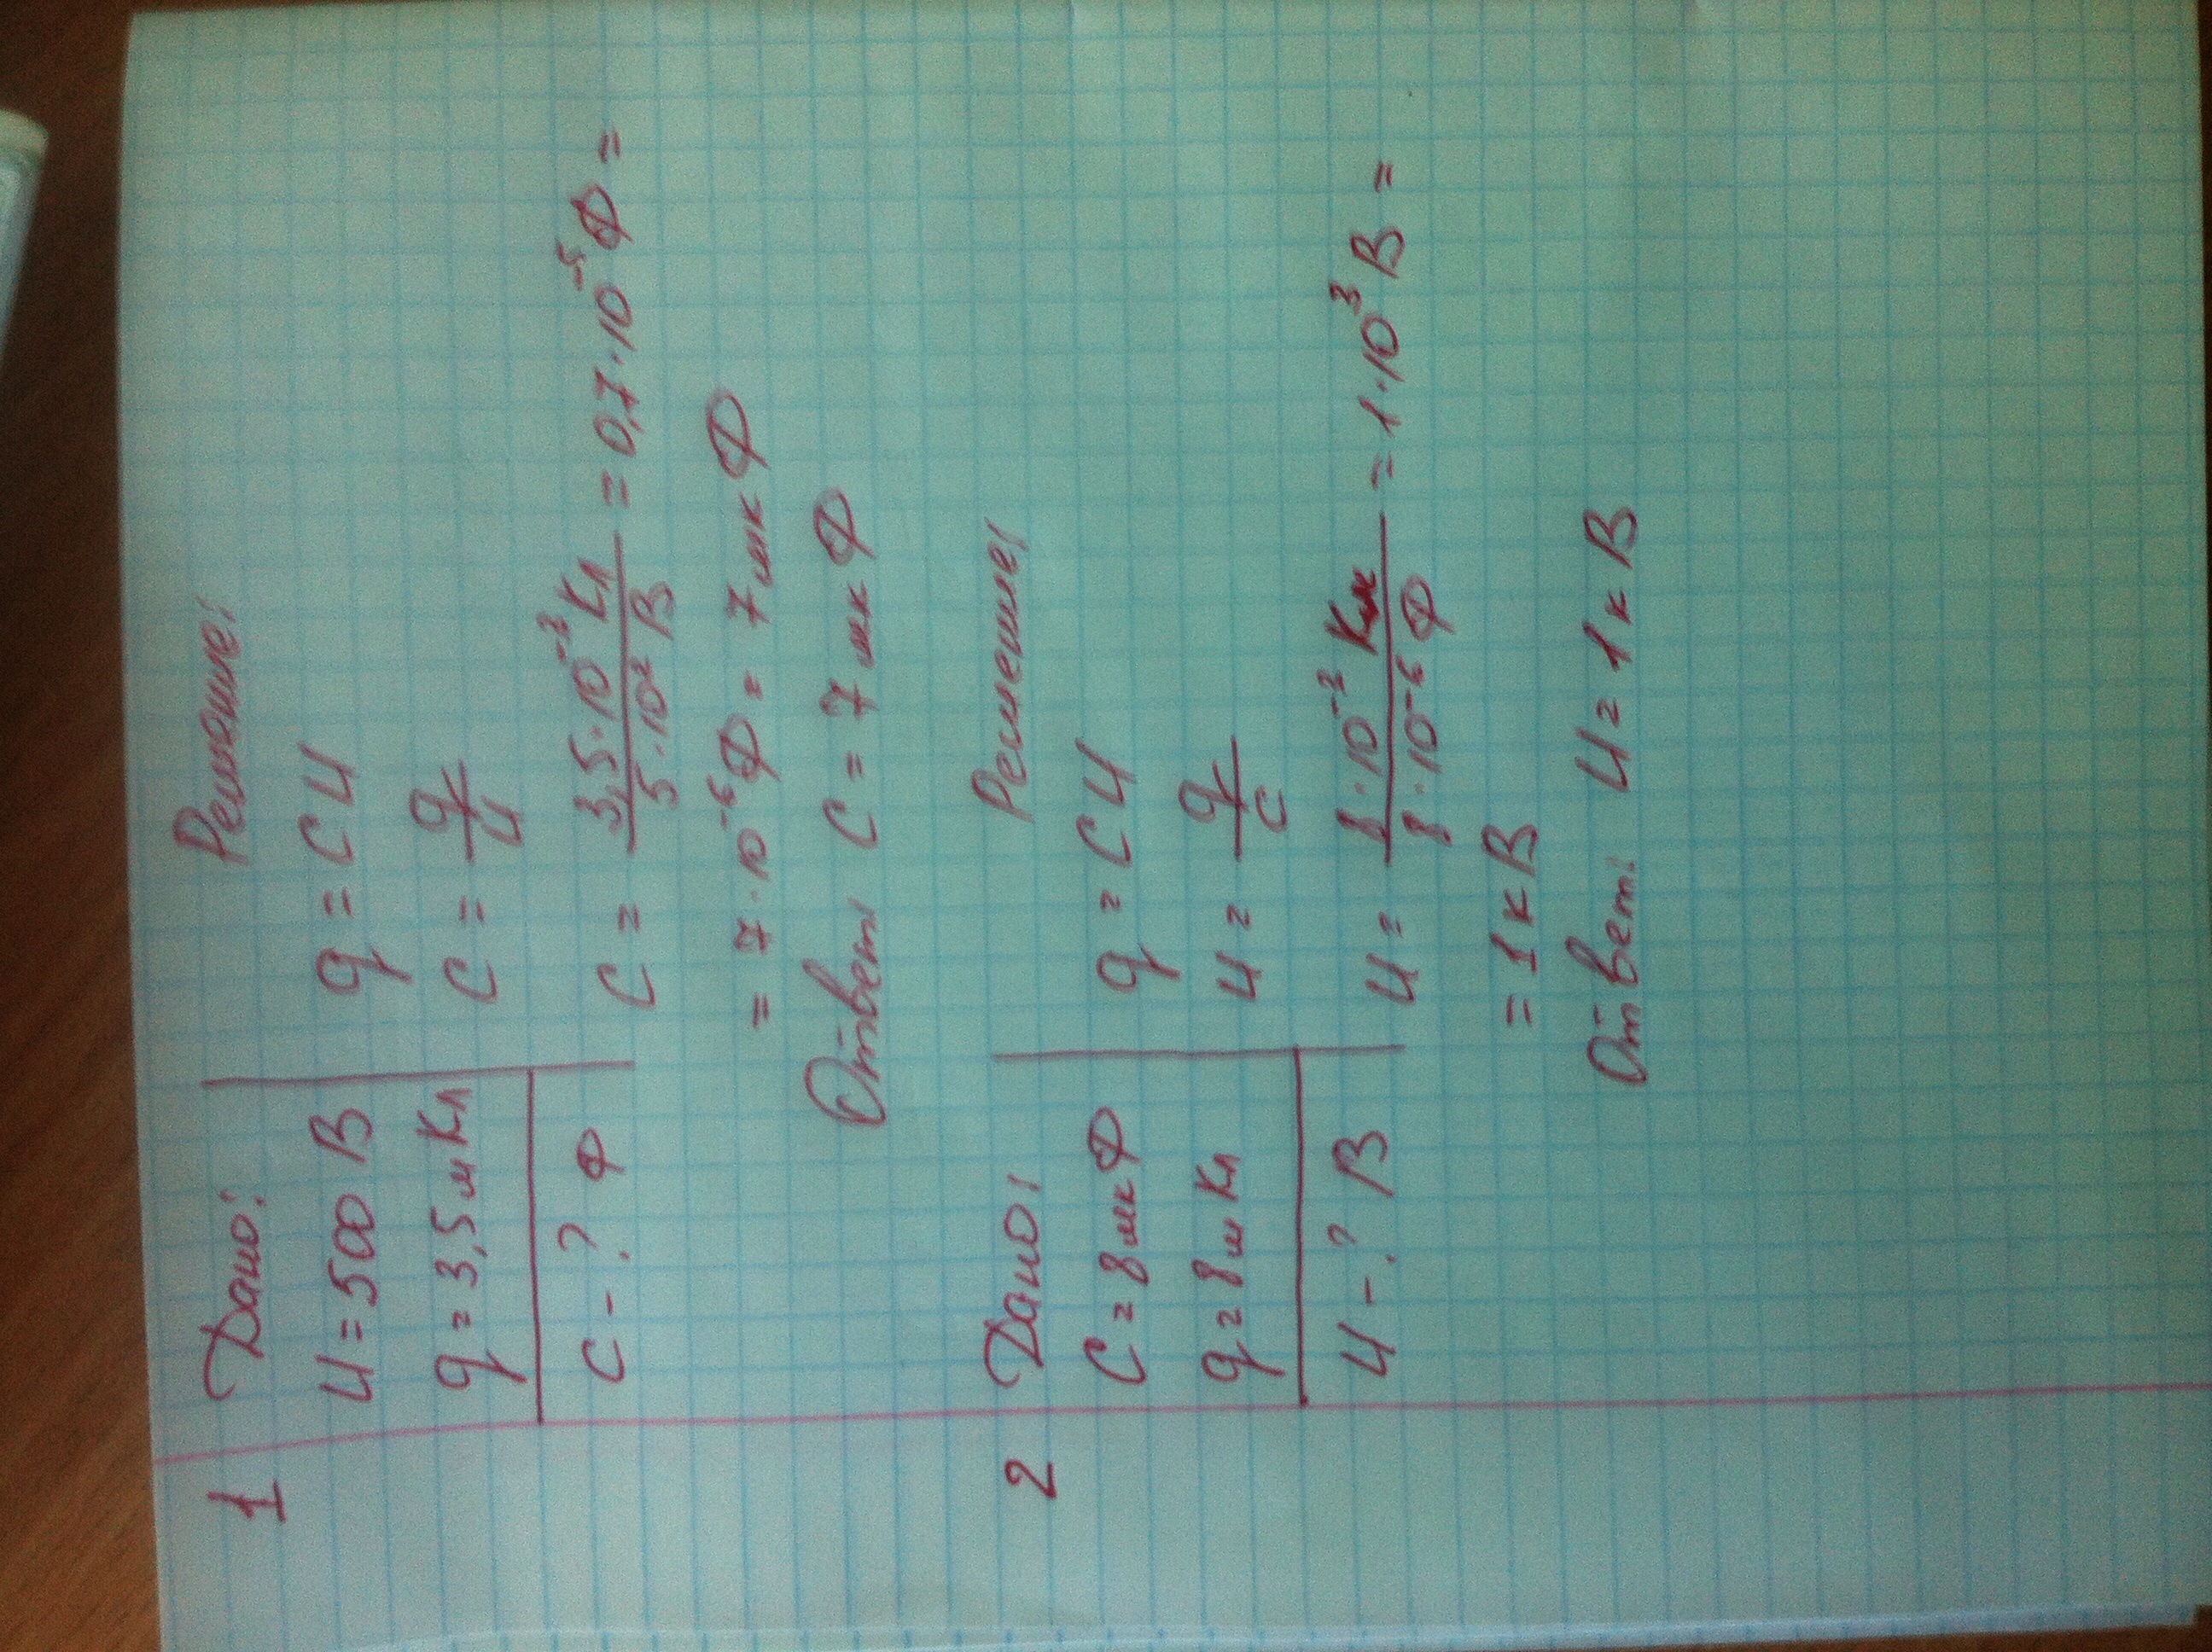 1 Дано:
U = 500 В
q = 3,5 мКл
C - ? Ф
Решение:
q = CU
C = q/U
C = 3,5·10⁻³ Кл / 5·10² В = 0,7·10⁻⁵ Ф =
= 7·10⁻⁶ Ф = 7 мкФ
Ответ: C = 7 мкФ
2 Дано:
C = 8 мкФ
q = 8 мКл
U - ? В
Решение:
q = CU
U = q/C
U = 8·10⁻³ Кл / 8·10⁻⁶ Ф = 1·10³ В =
= 1 кВ
Ответ: U = 1 кВ